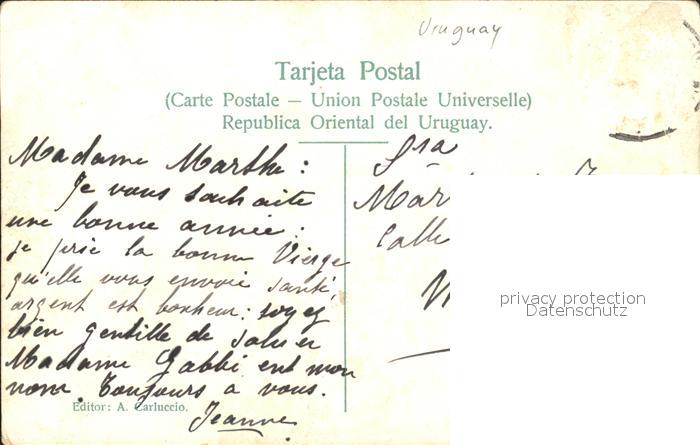 Uruguay
Tarjeta Postal
(Carte Postale — Union Postale Universelle)
Republica Oriental del Uruguay.
Madame Marthe:
Je vous souhaite
une bonne année:
je prie la bonne Vierge
qu'elle vous envoie santé,
argent est bonheur: soyez
bien gentille de saluer
Madame Gabbi ent mon
nom. Toujours a vous.
Jeanne
Editor: A. Carluccio.
Sra
Mar
Calle
privacy protection
Datenschutz